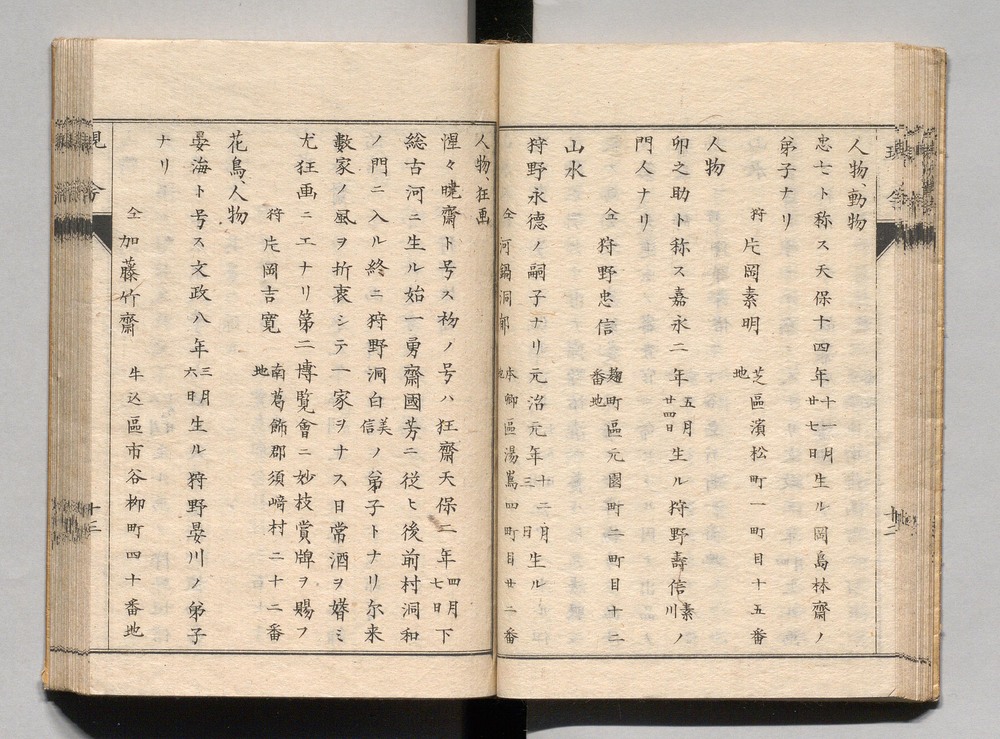 人物、動物
忠士ト称ス天保十四年十一月廿七日生ル岡島林齋ノ
弟子ナリ
狩 片岡素明 芝區濱松町一町目十五番地
人物
卯之助ト称ス嘉永二年五月廿四日生ル狩野壽信素川ノ
門人ナリ
仝 狩野忠信 麹町區元園町二町目十二番地
山水
狩野永德ノ嗣子ナリ元治元年十二月三日生ル
仝 河鍋洞郁 本郷區湯嶌四町目廿二番地
人物、狂画
惺々暁齋ト号ス初ノ号ハ狂齋天保二年四月七日下
総古河ニ生ル始一勇齋國芳ニ從ヒ後前村洞和
ノ門ニ入ル終ニ狩野洞白美信ノ弟子トナリ尓来
數家ノ風ヲ折衷シテ一家ヲナス日常酒ヲ嗜ミ
尤狂画ニエナリ第二博覧會ニ妙技賞牌ヲ賜フ
狩 片岡吉寛 南葛飾郡須﨑村二十二番地
花鳥、人物
晏海ト号ス文政八年三月六日生ル狩野晏川ノ弟子
ナリ
仝 加藤竹齋 牛込區市谷柳町四十番地
現今
十三